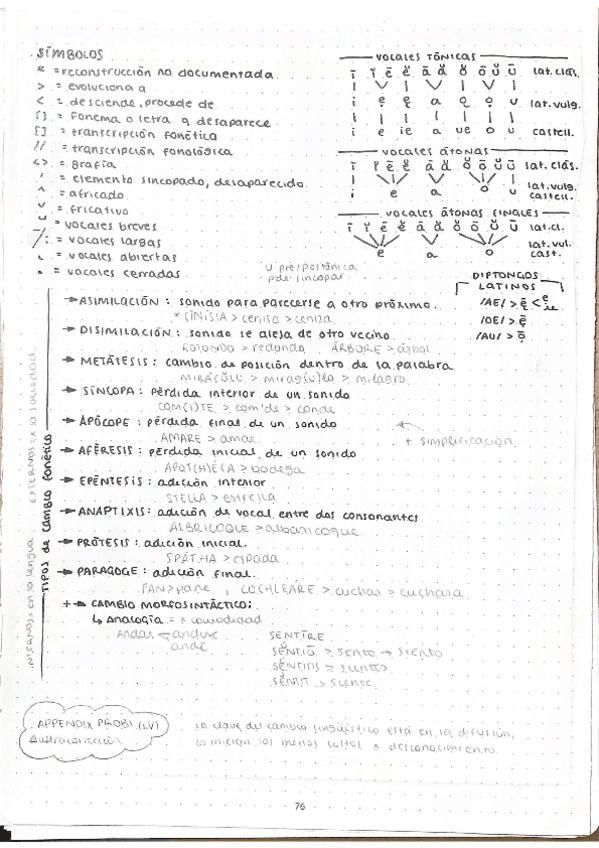 SÍMBOLOS
* = reconstrucción no documentada
> = evoluciona a
< = desciende, procede de
{ } = fonema o letra q desaparece
[ ] = transcripción fonética
// = transcripción fonológica
<> = grafía
' = elemento sincopado, desaparecido.
^ = africado
ˇ = fricativo
˘ = vocales breves
¯/: = vocales largas
= vocales abiertas
. = vocales cerradas
VOCALES TÓNICAS
ī ĭ ē ĕ ā ă ŏ ō ŭ ū lat. clás.
i ẹ ę a ǫ ọ u lat. vulg.
i e ie a ue o u castell.
VOCALES ÁTONAS
ī ĭ ē ĕ ā ă ŏ ō ŭ ū lat. clás.
i e a o u lat. vulg.
castell.
VOCALES ÁTONAS FINALES
ī ĭ ē ĕ ā ă ŏ ō ŭ ū lat. cl.
e a o lat. vul.
cast.
U pre/postónica
pde sincopar
DIPTONGOS
LATINOS
/AE/ > ę < e
ie
/OE/ > ẹ
/AU/ > ọ
TIPOS de CAMBIO fonético
INTERNOS: en la lengua EXTERNOS: x la sociedad
→ ASIMILACIÓN: sonido para parecerse a otro próximo.
* CINISIA > cenisa > ceniza
→ DISIMILACIÓN: sonido se aleja de otro vecino.
ROTONDO > redondo ÁRBORE > árbol
→ METÁTESIS: cambio de posición dentro de la palabra
MIRACULU > mirag(u)lo > milagro
→ SÍNCOPA: pérdida interior de un sonido
COM(I)TE > com'de > conde
→ APÓCOPE: pérdida final de un sonido
AMARE > amar
+ simplificación
→ AFÉRESIS: pérdida inicial de un sonido
APOT(H)ÉCA > bodega
→ EPÉNTESIS: adición interior
STELLA > estrella
→ ANAPTIXIS: adición de vocal entre dos consonantes
ALBRICOQUE > albaricoque
→ PRÓTESIS: adición inicial.
SPATHA > espada
→ PARAGOGE: adición final.
PAN > pane, COCHLEARE > cuchar > cuchara
+ → CAMBIO MORFOSINTÁCTICO:
↳ Analogía = x comodidad
Andar < anduve
andé
SENTIRE
SĔNTIŌ > sento → siento
SĔNTIS > sientes
SĔNTIT > siente
APPENDIX PROBI (s.V)
Autocorrección
la clave del cambio lingüístico está en la difusión,
lo inician los menos cultos x desconocimiento.
76